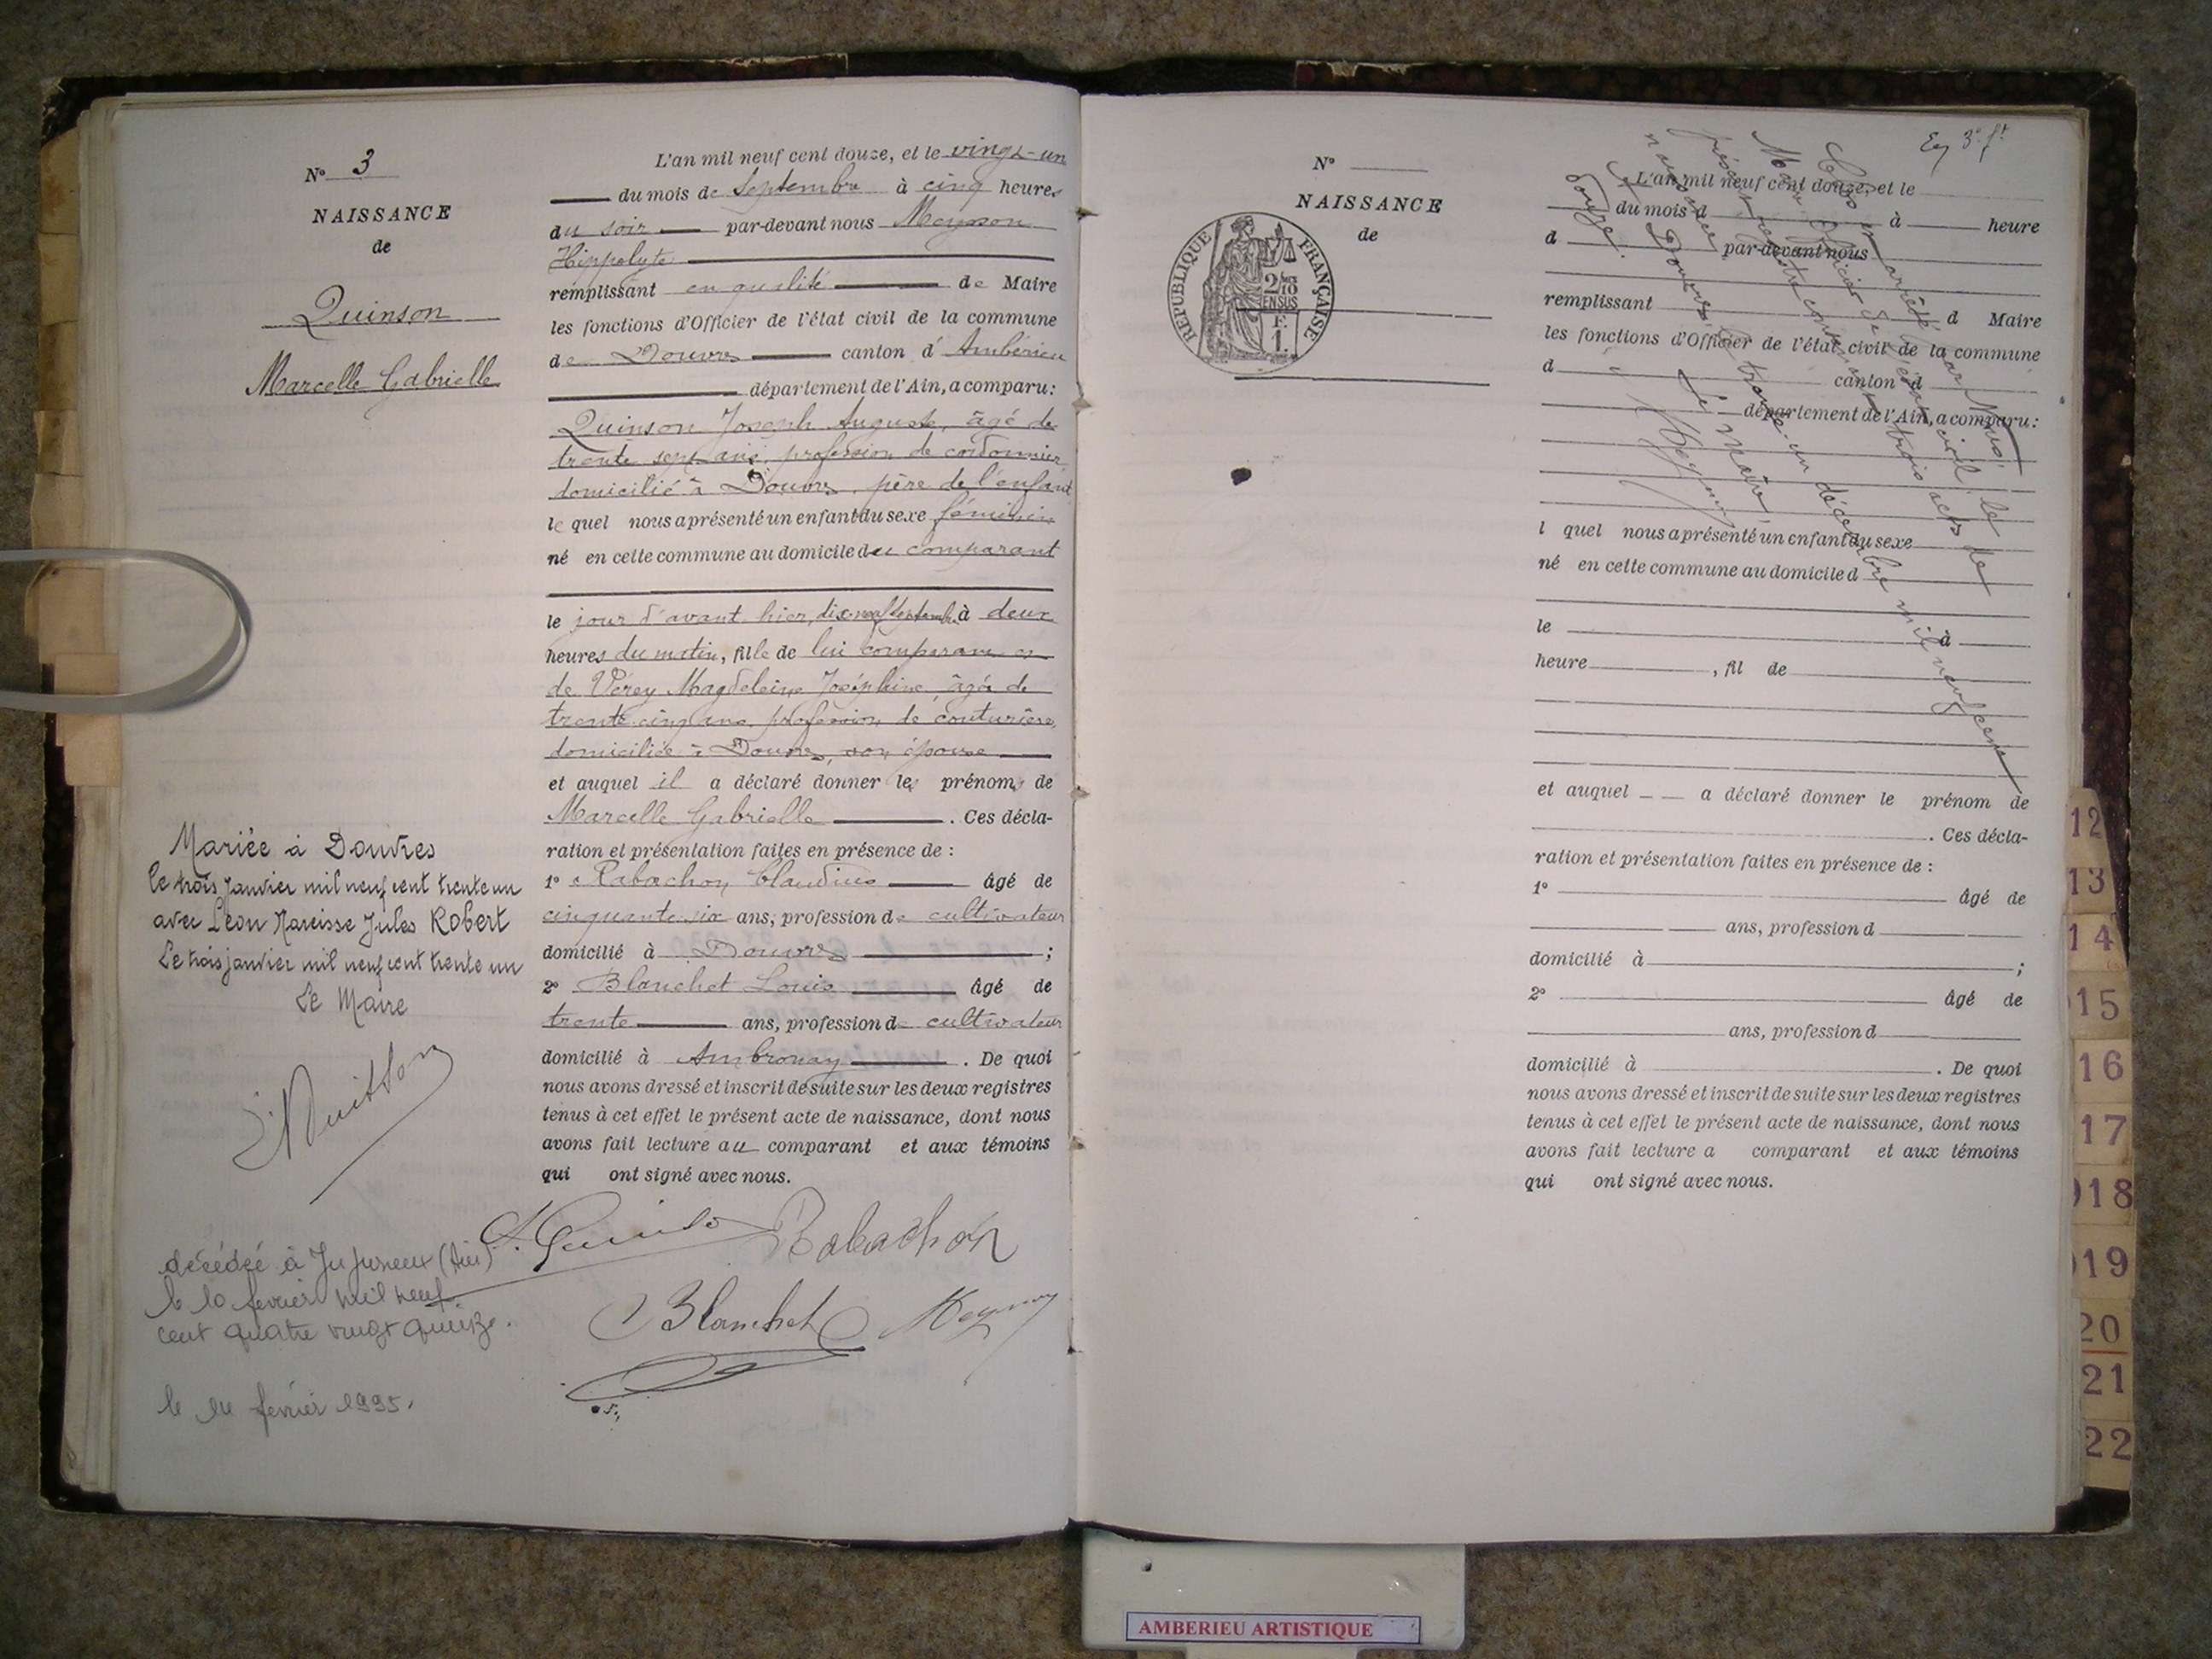 N° 3
NAISSANCE
de
Quinson
Marcelle Gabrielle
L'an mil neuf cent douze, et le vingt-un
du mois de Septembre à cinq heures
du soir par-devant nous Meynson
Hippolyte
remplissant en qualité de Maire
les fonctions d'Officier de l'état civil de la commune
de Douvres canton d'Ambérieu
département de l'Ain, a comparu:
Quinson Joseph Auguste, âgé de
trente sept ans, profession de cordonnier
domicilié à Douvres, père de l'enfant
lequel nous a présenté un enfant du sexe féminin
né en cette commune au domicile du comparant
le jour d'avant hier, dix-neuf Septembre à deux
heures du matin, fille de lui comparant et
de Vérey Magdeleine Joséphine, âgée de
trente cinq ans, profession de couturière,
domiciliée à Douvres, son épouse
et auquel il a déclaré donner les prénoms de
Marcelle Gabrielle. Ces décla-
ration et présentation faites en présence de :
1° Rabachon Claudius âgé de
cinquante six ans, profession de cultivateur
domicilié à Douvres ;
2° Blanchet Louis âgé de
trente ans, profession de cultivateur
domicilié à Ambronay. De quoi
nous avons dressé et inscrit de suite sur les deux registres
tenus à cet effet le présent acte de naissance, dont nous
avons fait lecture au comparant et aux témoins
qui ont signé avec nous.
Rabachon
Blanchet
Mariée à Douvres
le trois janvier mil neuf cent trente un
avec Léon Narcisse Jules Robert
Le trois janvier mil neuf cent trente un
Le Maire
décédée à Jujurieux (Ain)
le 10 février mil neuf
cent quatre vingt quinze.
le 14 février 1995.
N°
NAISSANCE
de
RÉPUBLIQUE FRANÇAISE
2/10
EN SUS
F.
1.
L'an mil neuf cent douze, et le
du mois d à heure
d par-devant nous
remplissant d Maire
les fonctions d'Officier de l'état civil de la commune
d canton d
département de l'Ain, a comparu:
l quel nous a présenté un enfant du sexe
né en cette commune au domicile d
le à
heure , fil de
et auquel a déclaré donner le prénom de
. Ces décla-
ration et présentation faites en présence de :
1° âgé de
ans, profession d
domicilié à ;
2° âgé de
ans, profession d
domicilié à . De quoi
nous avons dressé et inscrit de suite sur les deux registres
tenus à cet effet le présent acte de naissance, dont nous
avons fait lecture a comparant et aux témoins
qui ont signé avec nous.
Clos et arrêté par Nous,
Maire Officier de l'état civil, le
présent registre contenant trois actes de
naissance
à Douvres le trente un décembre mil neuf cent
douze.
Le Maire
12
13
14
15
16
17
18
19
20
21
22
AMBERIEU ARTISTIQUE